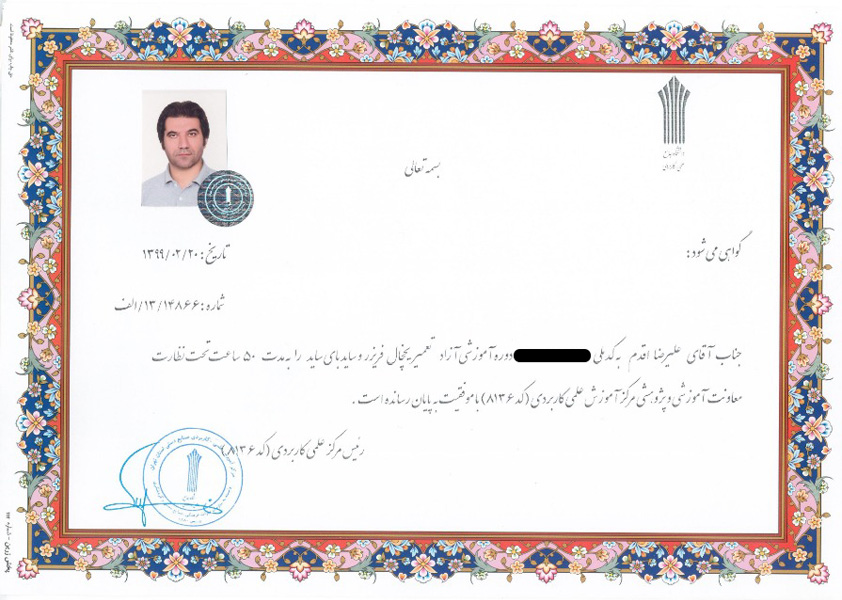 بسمه تعالی
دانشگاه جامع
علمی کاربردی
تاریخ: ۱۳۹۹/۰۲/۲۰
گواهی می شود:
شماره: ۱۳/۱۴۸۶۶/الف
جناب آقای علیرضا اقدم به کد ملی دوره آموزشی آزاد تعمیر یخچال فریزر و ساید بای ساید را به مدت ۵۰ ساعت تحت نظارت
معاونت آموزشی و پژوهشی مرکز آموزش علمی کاربردی (کد ۸۱۳۶) با موفقیت به پایان رسانده است.
رئیس مرکز علمی کاربردی (کد ۸۱۳۶)